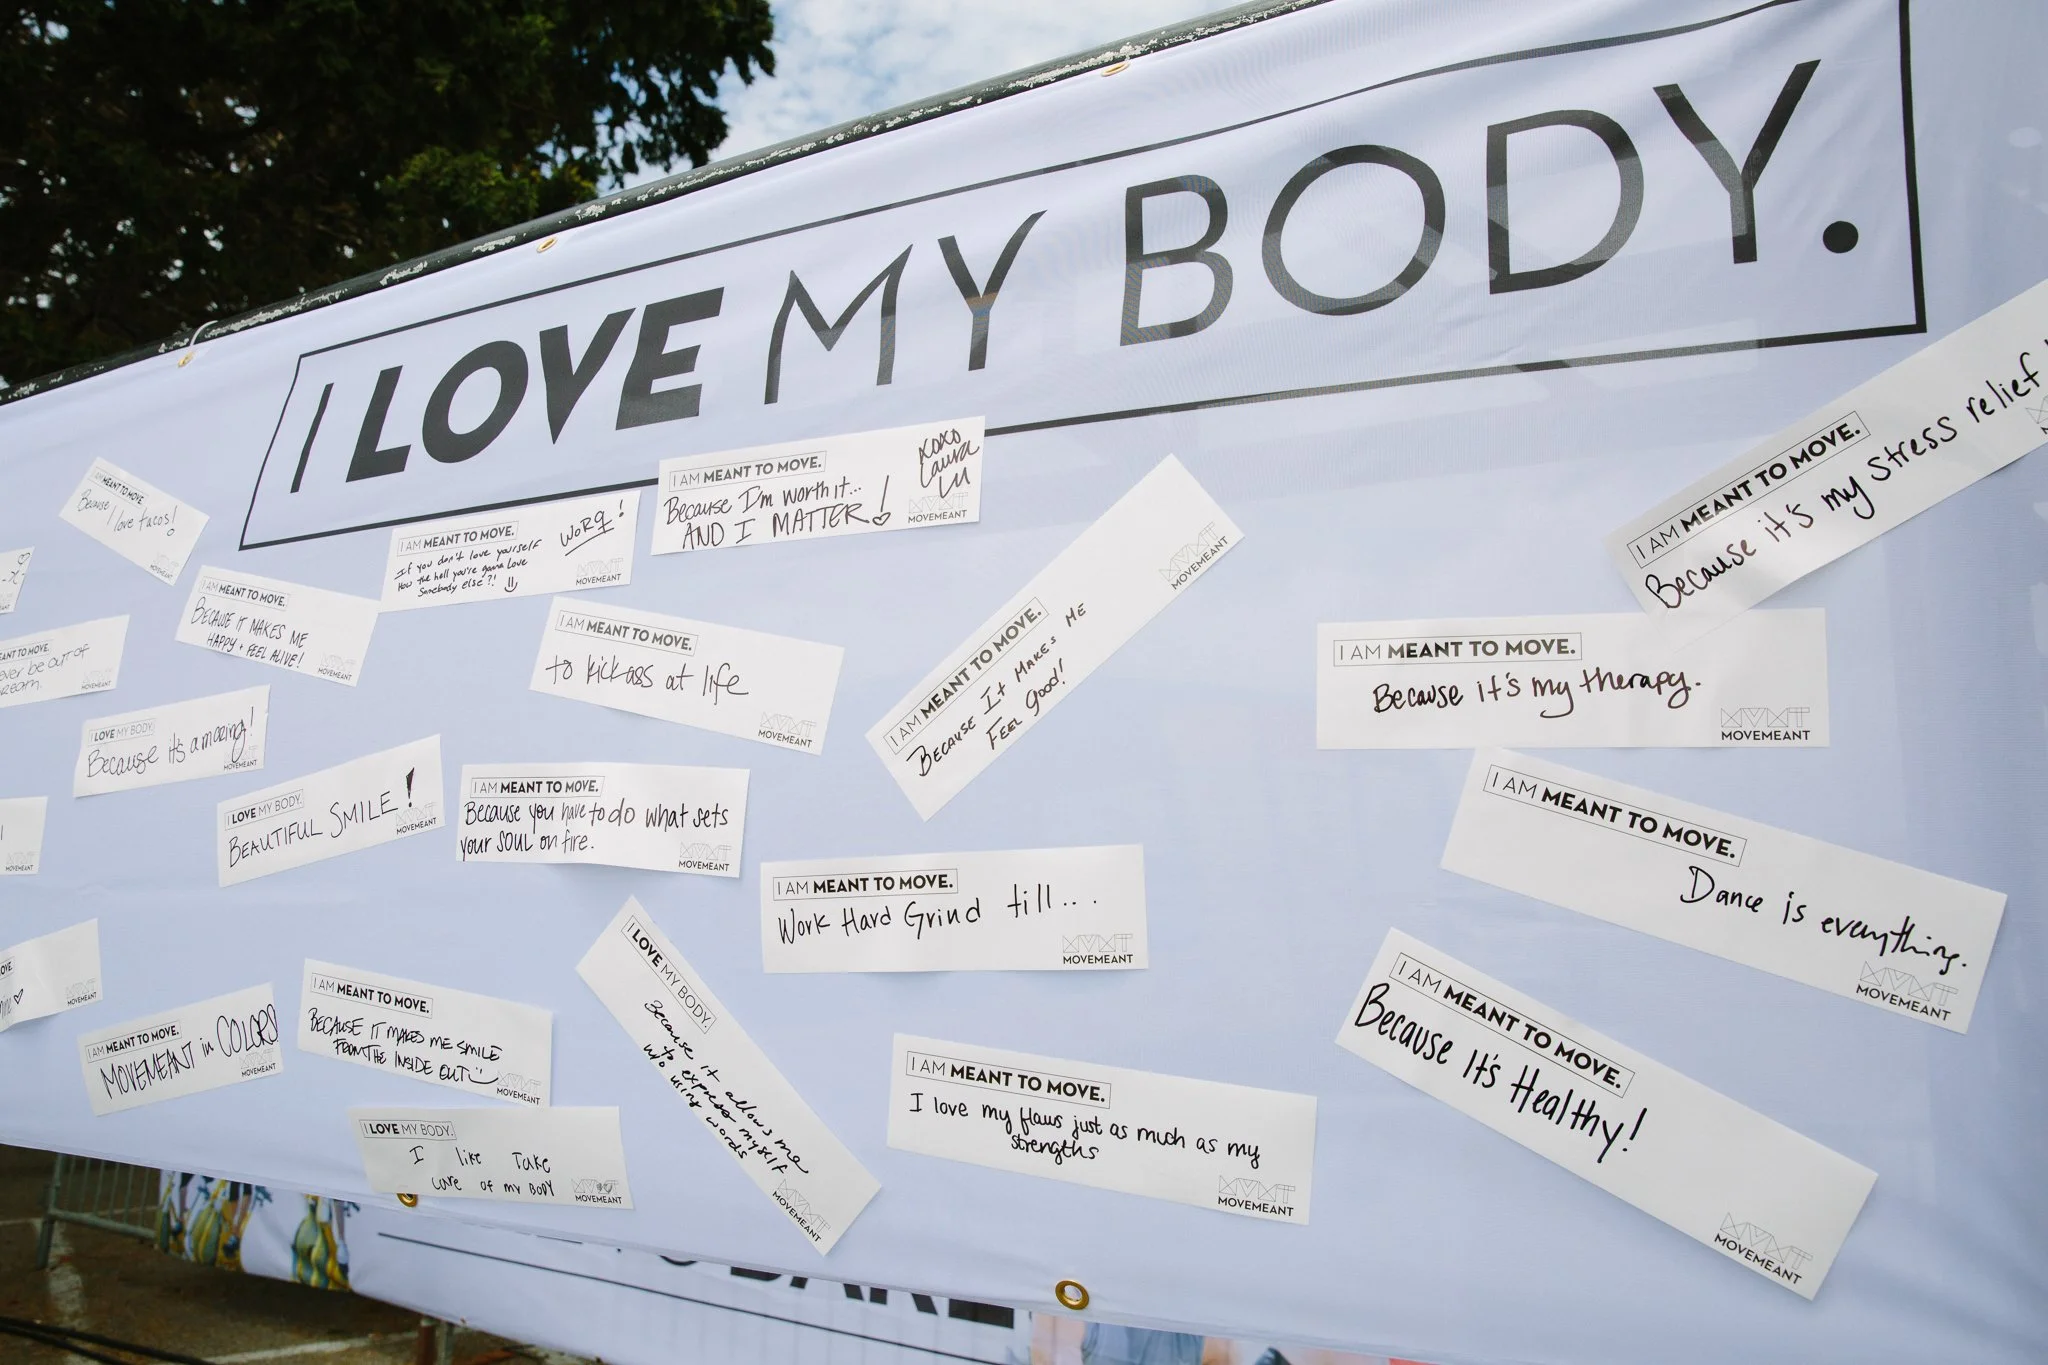 I LOVE MY BODY.
I AM MEANT TO MOVE.
Because
I love tacos!
MOVEMEANT
I AM MEANT TO MOVE.
If you don't love yourself
How the hell you're gonna love
Somebody else?!
WORQ!
MOVEMEANT
I AM MEANT TO MOVE.
Because I'm worth it...
AND I MATTER!
XOXO
Laura
MOVEMEANT
I AM MEANT TO MOVE.
Because it's my stress relief
I AM MEANT TO MOVE.
BECAUSE IT MAKES ME
HAPPY + FEEL ALIVE!
MOVEMEANT
I AM MEANT TO MOVE.
to kick ass at life
MOVEMEANT
I AM MEANT TO MOVE.
BECAUSE IT MAKES ME
FEEL good!
MOVEMEANT
I AM MEANT TO MOVE.
Because it's my therapy.
MOVEMEANT
ANT TO MOVE.
ver be out of
MOVEMEANT
I LOVE MY BODY.
Because it's amazing!
MOVEMEANT
I LOVE MY BODY.
BEAUTIFUL SMILE!
MOVEMEANT
I AM MEANT TO MOVE.
Because you have to do what sets
your SOUL on fire.
MOVEMEANT
I AM MEANT TO MOVE.
Work Hard Grind till...
MOVEMEANT
I AM MEANT TO MOVE.
Dance is everything.
MOVEMEANT
MOVEMEANT
I AM MEANT TO MOVE.
MOVEMEANT in COLORS
MOVEMEANT
I AM MEANT TO MOVE.
BECAUSE IT MAKES ME SMILE
FROM THE INSIDE OUT
MOVEMEANT
I LOVE MY BODY.
Because it allows me
to express myself
w/o using words
MOVEMEANT
I AM MEANT TO MOVE.
I love my flaws just as much as my
strengths
MOVEMEANT
I AM MEANT TO MOVE.
Because It's Healthy!
MOVEMEANT
I LOVE MY BODY.
I like Take
care of my BODY
MOVEMEANT